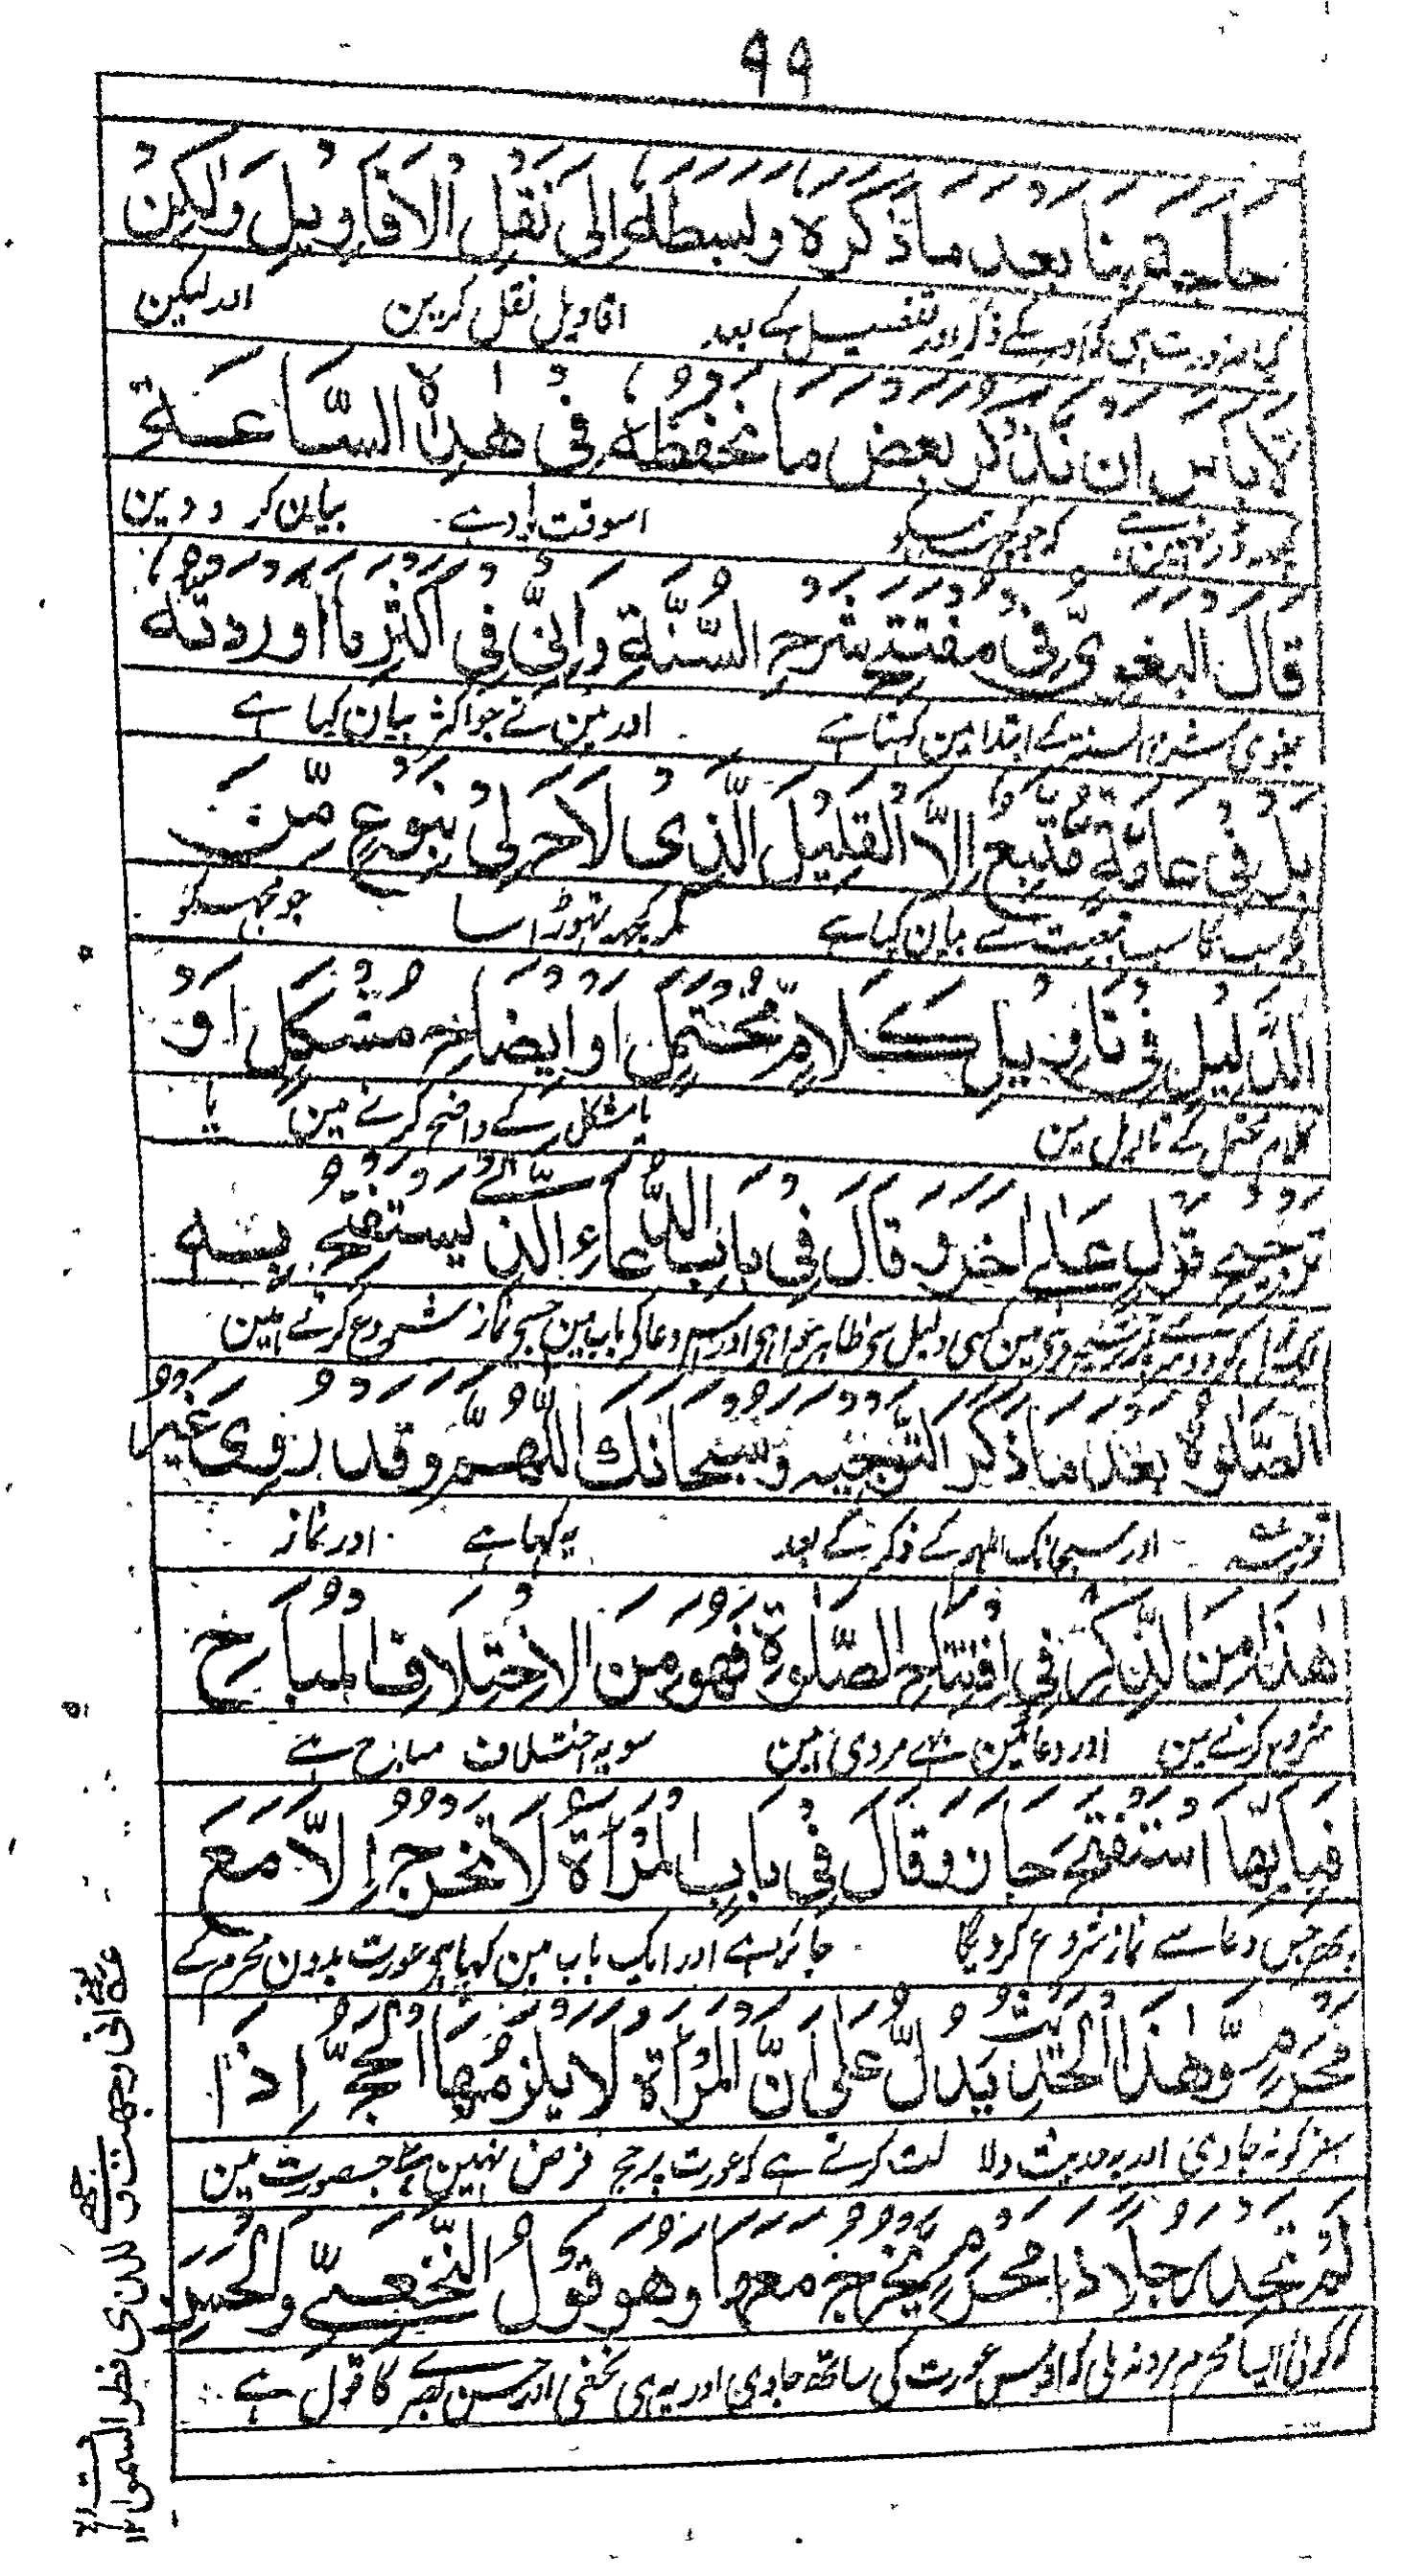 ۹۹
حَاجَةَ بِنَا بَعْدَ مَا ذَكَرَهٗ وَبَسَطَهٗ اِلٰى نَقْلِ الْاَقَاوِيْلِ وَلٰكِنْ
کے ذکر اور تفصیل کے بعد اقاویل نقل کرین اور لیکن
لَا بَأْسَ اَنْ نَذْكُرَ بَعْضَ مَا نَحْفَظُهٗ فِيْ هٰذِهِ السَّاعَةِ
کچھ ڈر نہین ہے اسوقت یاد ہے بیان کر دوین
قَالَ الْبَغَوِيُّ فِيْ مُفْتَتَحِ شَرْحِ السُّنَّةِ وَاِنِّيْ فِيْ اَكْثَرِ مَا اَوْرَدْتُهٗ
بغوی شرح السنہ کے ابتدا مین کہتا ہے اور مین نے جو اکثر بیان کیا ہے
بَلْ فِيْ عَامَّةٍ مُتَّبِعٌ اِلَّا الْقَلِيْلَ الَّذِيْ لَاحَ لِيْ بِنَوْعٍ مِّنَ
سب کا سب تبعیت سے بیان کیا ہے مگر کچھ تہوڑا سا جو مجہہ کو
الدَّلِيْلِ فِيْ تَاوِيْلِ كَلَامٍ مُّحْتَمِلٍ اَوْ اِيْضَاحِ مُشْكِلٍ اَوْ
کلام محتمل کے تاویل مین یا مشکل کے واضح کرنے مین یا
تَرْجِيْحِ قَوْلٍ عَلٰى اٰخَرَ وَقَالَ فِيْ بَابِ الدُّعَاءِ الَّذِيْ يُسْتَفْتَحُ بِهِ
مین کسی دلیل سی ظاہر ہوا ہی اور اس دعا کی باب مین جس سے نماز شروع کرتے ہین
الصَّلٰوةُ بَعْدَ مَا ذَكَرَ التَّوْجِيْهَ وَسُبْحَانَكَ اللّٰهُمَّ وَقَدْ رُوِيَ غَيْرُ
توجیہ اور سبحانک اللہم کے ذکر کے بعد یہ کہا ہے اور نماز
هٰذَا مِنَ الذِّكْرِ فِي افْتِتَاحِ الصَّلٰوةِ فَهُوَ مِنَ الْاِخْتِلَافِ الْمُبَاحِ
شروع کرنے مین اور دعائین بھی مروی ہین سو یہ اختلاف مباح ہے
فَبِاَيِّهَا اسْتَفْتَحَ جَازَ وَقَالَ فِيْ بَابِ الْمَرْاَةُ لَا تَخْرُجُ اِلَّا مَعَ
پھر جس دعا سے نماز شروع کر دیگا جائز ہے اور ایک باب مین کہا ہی عورت بدون محرم کے
مَحْرَمٍ وَّهٰذَا الْحَدِيْثُ يَدُلُّ عَلٰى اَنَّ الْمَرْاَةَ لَا يَلْزَمُهَا الْحَجُّ اِذَا
سفر کو نہ جاوی اور یہ حدیث دلالت کرتے ہے کہ عورت پر حج فرض نہین ہے جس صورت مین
لَمْ تَجِدْ رَجُلًا ذَا مَحْرَمٍ يَخْرُجُ مَعَهَا وَهُوَ قَوْلُ النَّخَعِيِّ وَالْحَسَنِ
کہ کوئی ایسا محرم مرد نہ ملی کہ اوس عورت کی ساتھ جاوی اور یہ ہی نخعی اور حسن بصری کا قول ہے
انی وجھت وجہی للذی فطر السموات